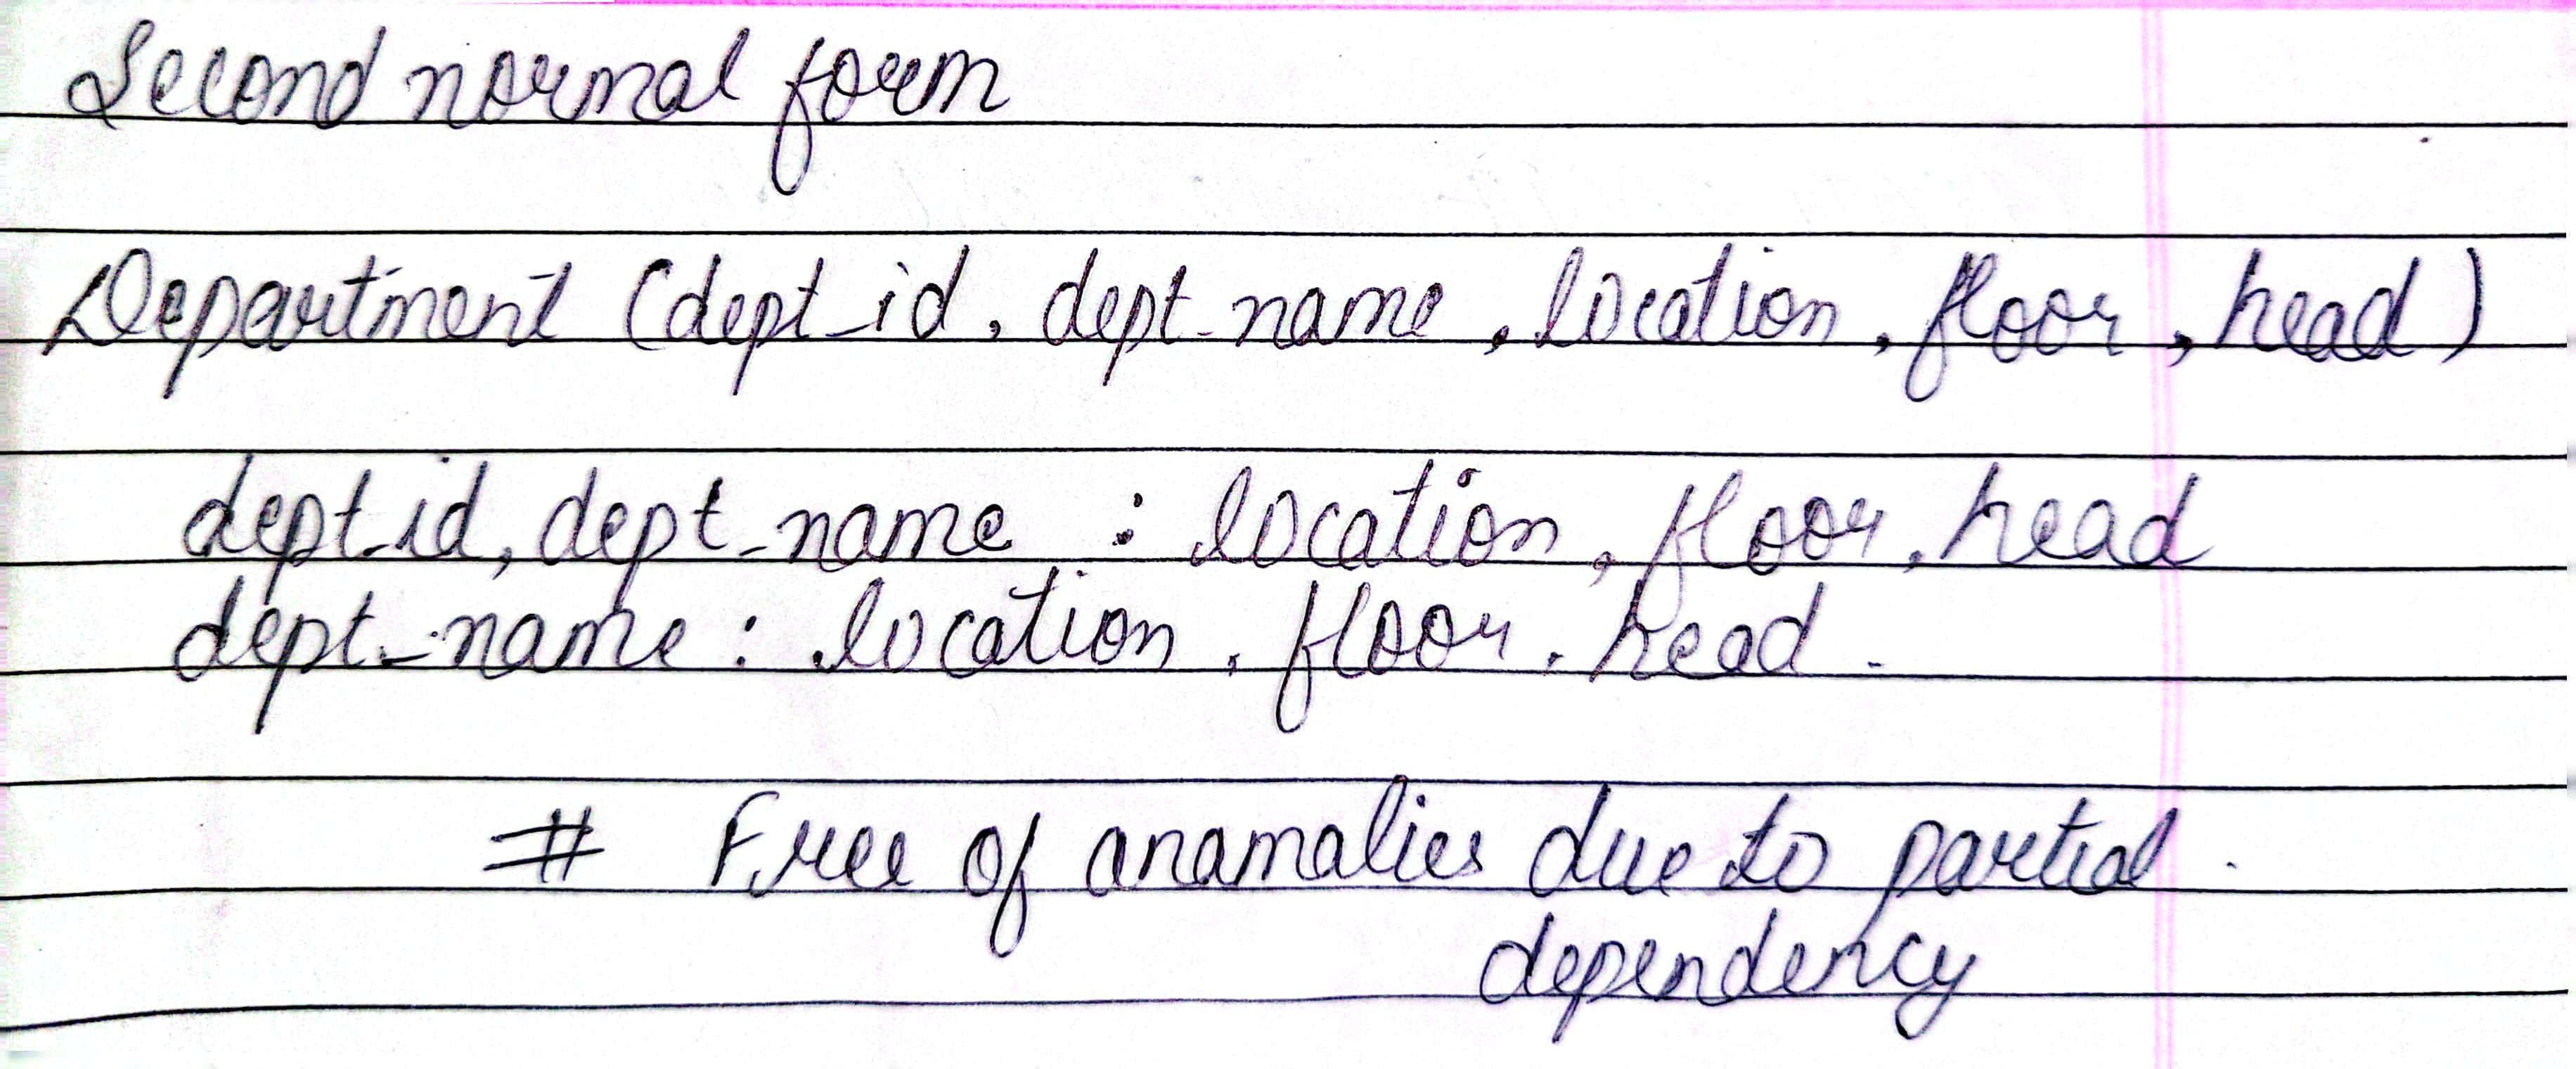 Second normal form
Department (dept_id, dept_name, location, floor, head)
dept_id, dept_name : location, floor, head
dept_name : location, floor, head.
# Free of anamalies due to partial
dependency